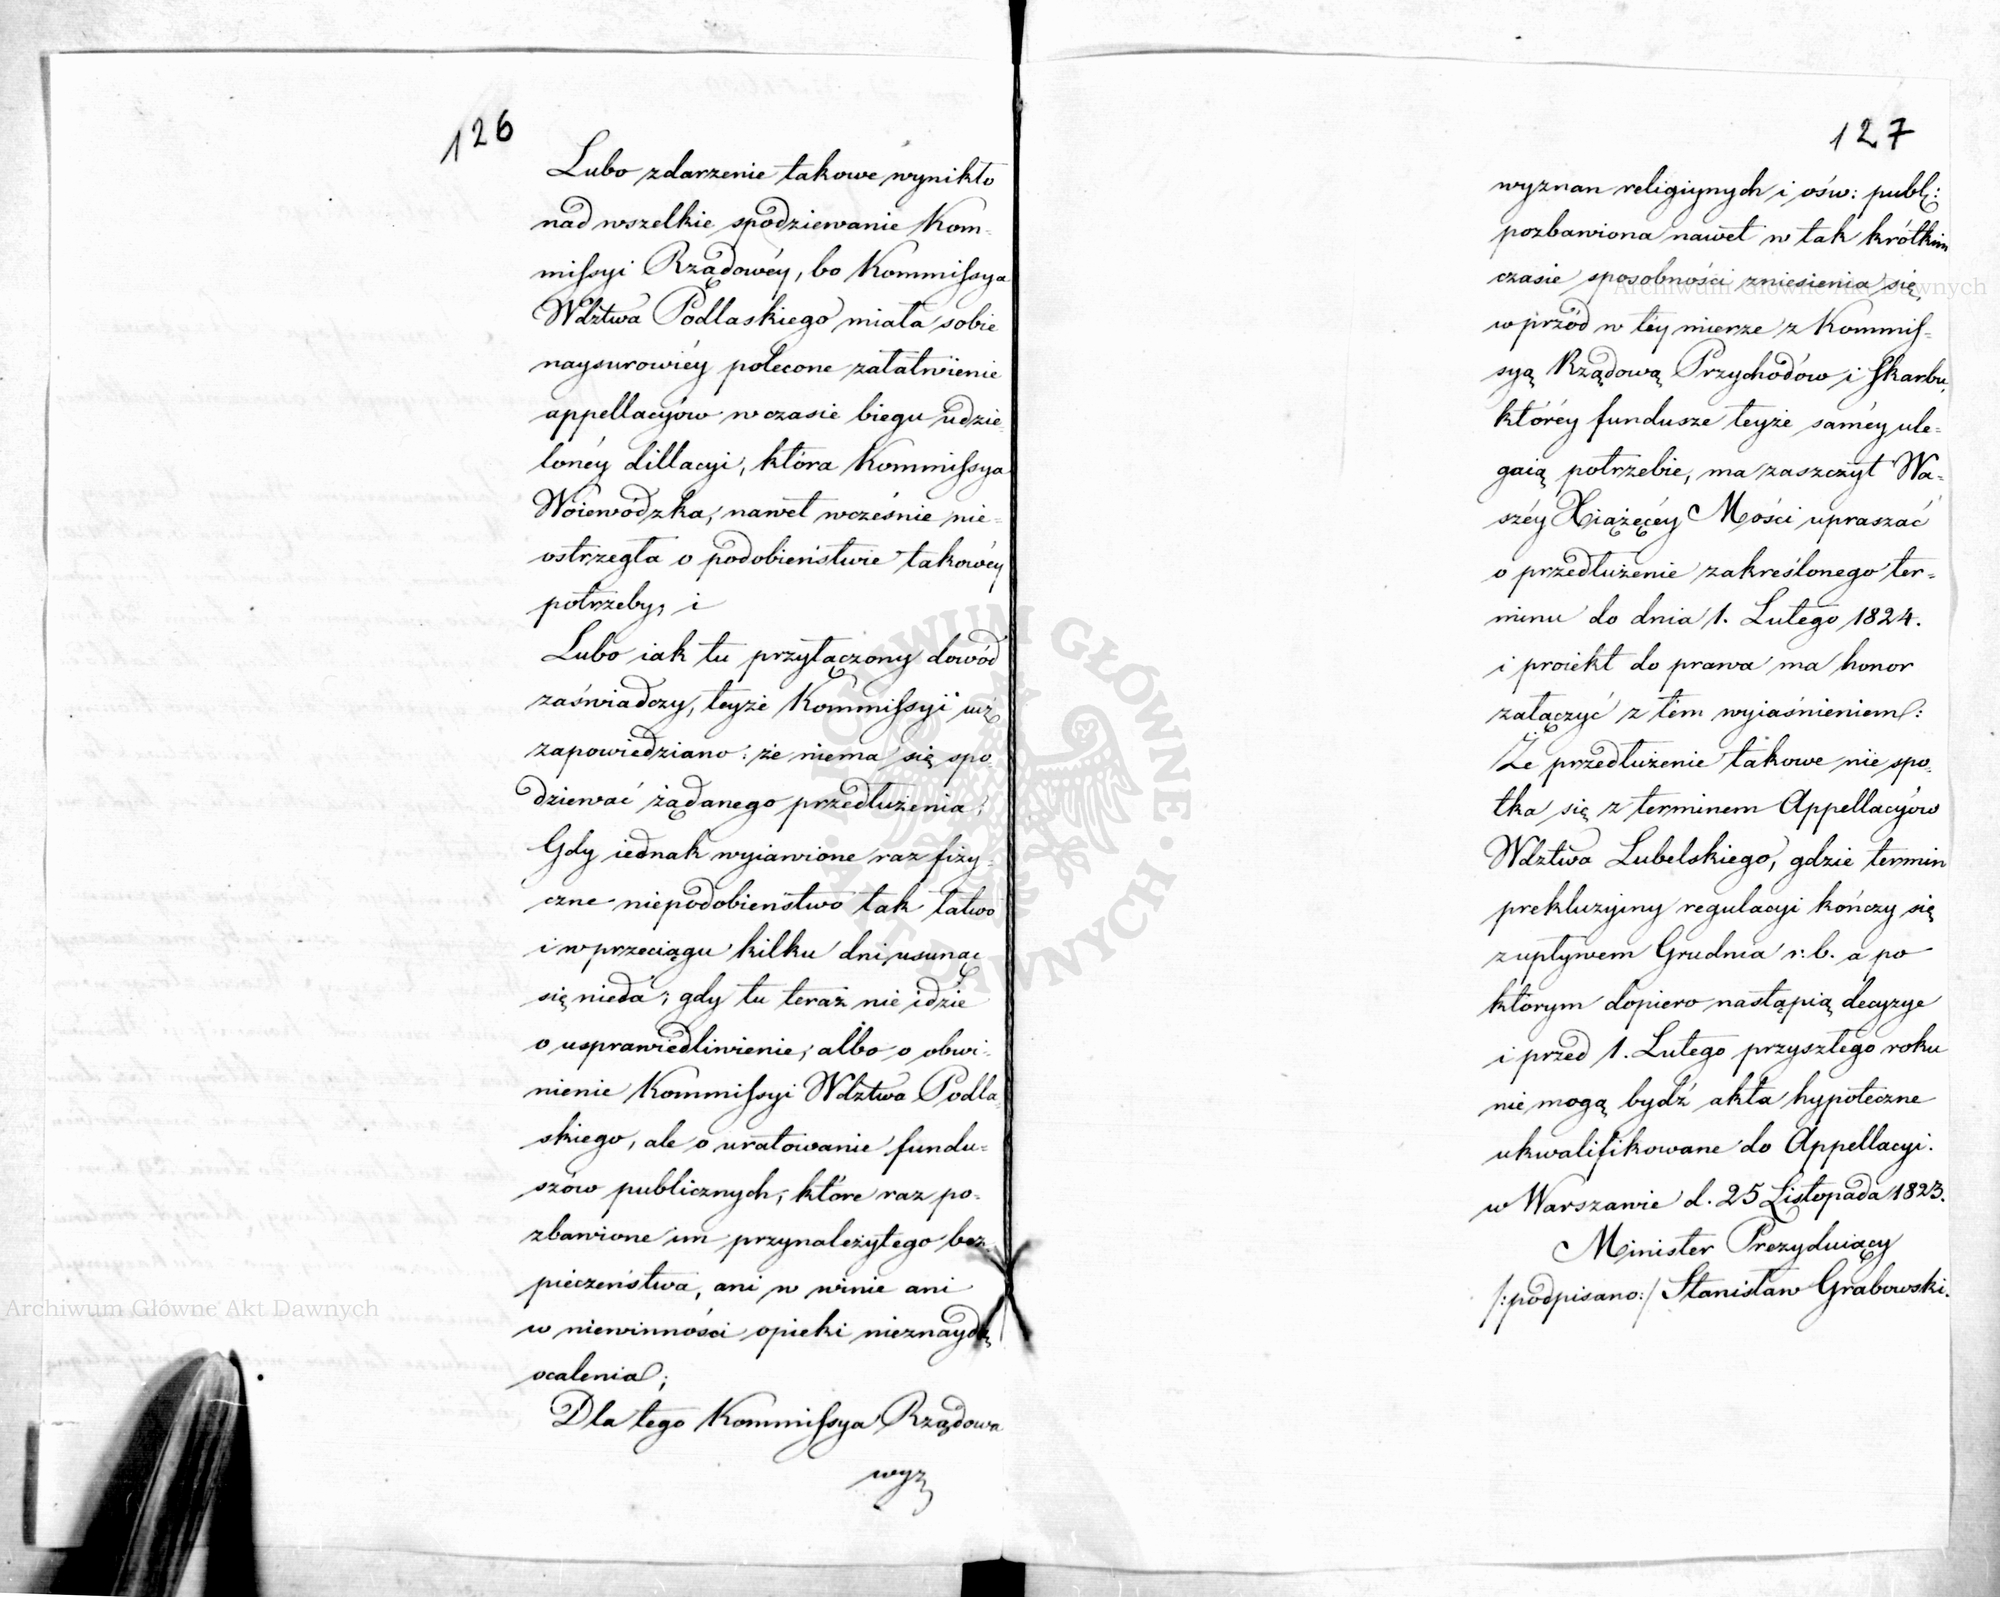 126
Lubo zdarzenie takowe wynikło
nad wszelkie spodziewanie Kom-
missyi Rządowéy, bo Kommissya
Wdztwa Podlaskiego miała sobie
naysurowiéy polecone załatwienie
appellacyów w czasie biegu udzie-
lonéy dillacyi, która Kommissya
Woiewódzka, nawet wcześnie nie-
ostrzegła o podobieństwie takowéy
potrzeby, i
Lubo iak tu przyłączony dowód
zaświadczy, teyże Kommissyi iuż
zapowiedziano: że niema się spo-
dziewać żądanego przedłużenia;
Gdy iednak wyiawione raz fizy-
czne niepodobieństwo tak łatwo
i w przeciągu kilku dni usunąć
się nieda; gdy tu teraz nie idzie
o usprawiedliwienie, albo o obwi-
nienie Kommissyi Wdztwa Podla-
skiego, ale o uratowanie fundu-
szów publicznych, które raz po-
zbawione im przynależytego bez-
pieczeństwa, ani w winie ani
w niewinności opieki nieznaydą
ocalenia;
Dla tego Kommissya Rządowa
wyz
127
wyznan religiynych i ośw: publ:
pozbawiona nawet w tak krótkim
czasie sposobności zniesienia się,
wprzód w téy mierze z Kommis-
syą Rządową Przychodów i Skarbu,
któréy fundusze teyże saméy ule-
gaią potrzebie, ma zaszczyt Wa-
széy Xiążęcéy Mości upraszać
o przedłużenie zakreślonego ter-
minu do dnia 1. Lutego 1824.
i proiekt do prawa ma honor
załączyć z tém wyiaśnieniem:
Że przedłużenie takowe nie spo-
tka się z terminem Appellacyów
Wdztwa Lubelskiego, gdzie termin
prekluzyiny regulacyi kończy się
z upływem Grudnia r: b. a po
którym dopiero nastąpią decyzye
i przed 1. Lutego przyszłego roku
nie mogą bydź akta hypoteczne
ukwalifikowane do Appellacyi.
w Warszawie d. 25 Listopada 1823.
Minister Prezyduiący
/:podpisano:/ Stanisław Grabowski.
Archiwum Główne Akt Dawnych
Archiwum Główne Akt Dawnych
ARCHIWUM GŁÓWNE AKT DAWNYCH